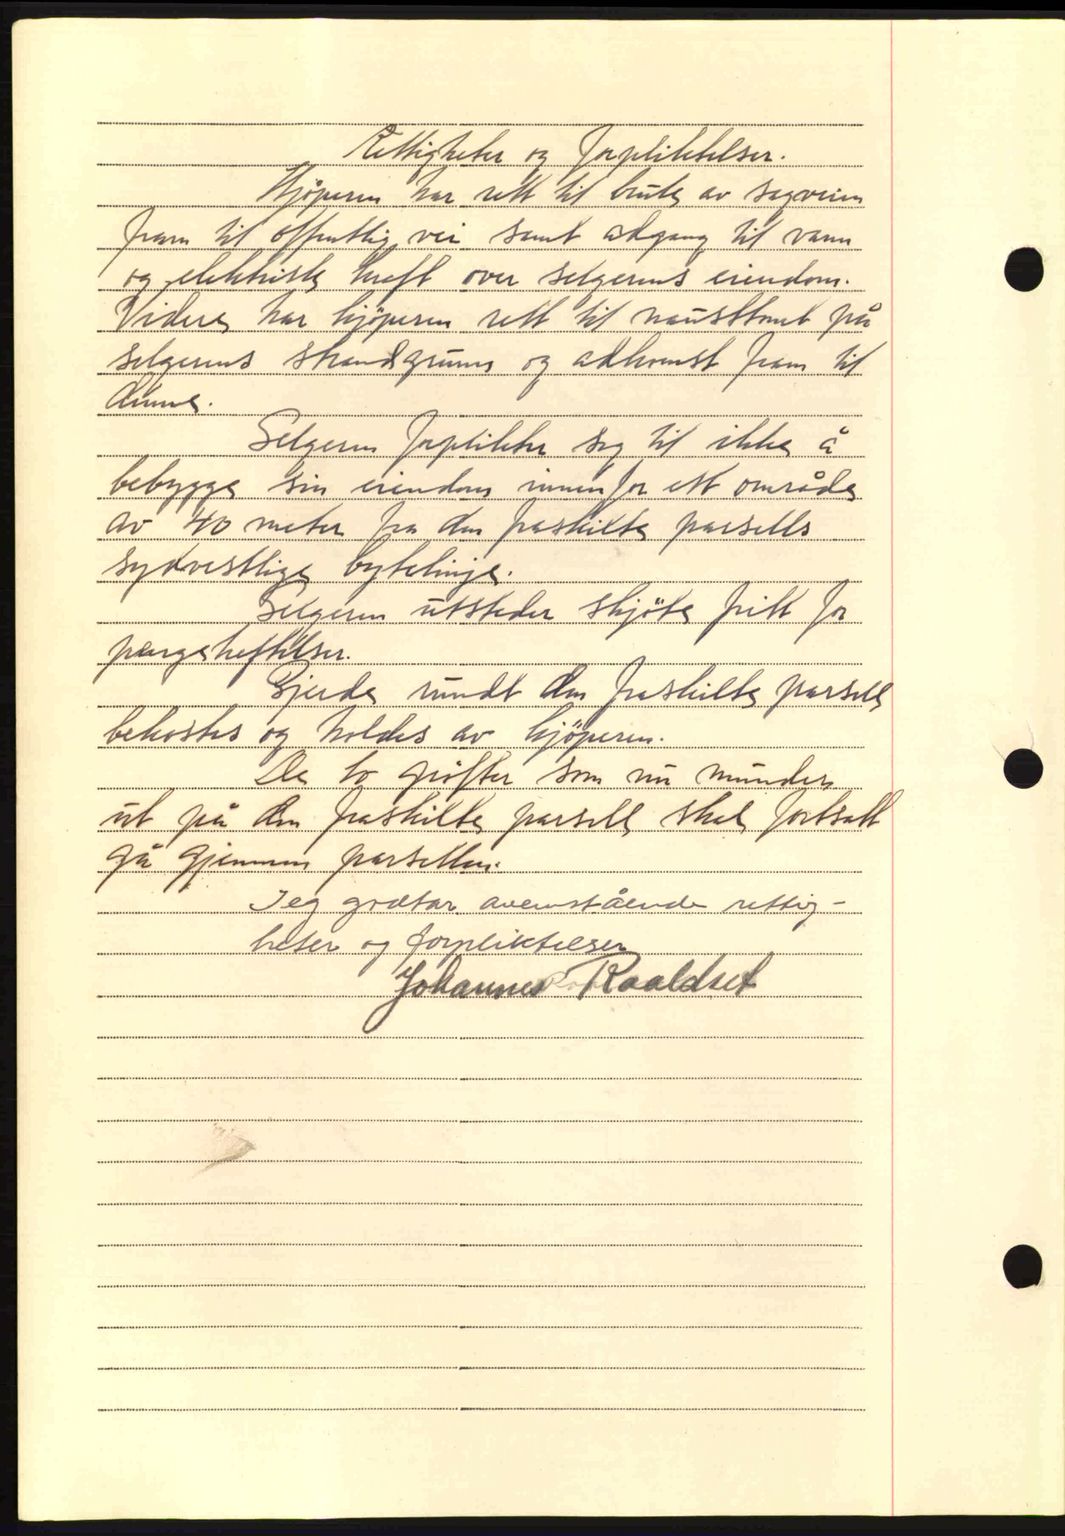 Rettigheter og forpliktelser.
Kjøperen har rett til bruk av sagveien
fram til offentlig vei samt adgang til vann
og elektrisk kraft over selgerens eiendom.
Videre har kjøperen rett til nausttomt på
selgerens strandgrunn og adkomst fram til
denne.
Selgeren forplikter seg til ikke å
bebygge sin eiendom innenfor ett område
av 40 meter fra den fraskilte parsells
sydvestlige bytelinje.
Selgeren utsteder skjöte fritt for
pengeheftelser.
Gjerde rundt den fraskilte parsell
bekostes og holdes av kjöperen.
De to grøfter som nu munder
ut på den fraskilte parsell skal fortsatt
gå gjennem parsellen.
Jeg godtar ovenstående rettig-
heter og forpliktelser
Johannes Raaldset